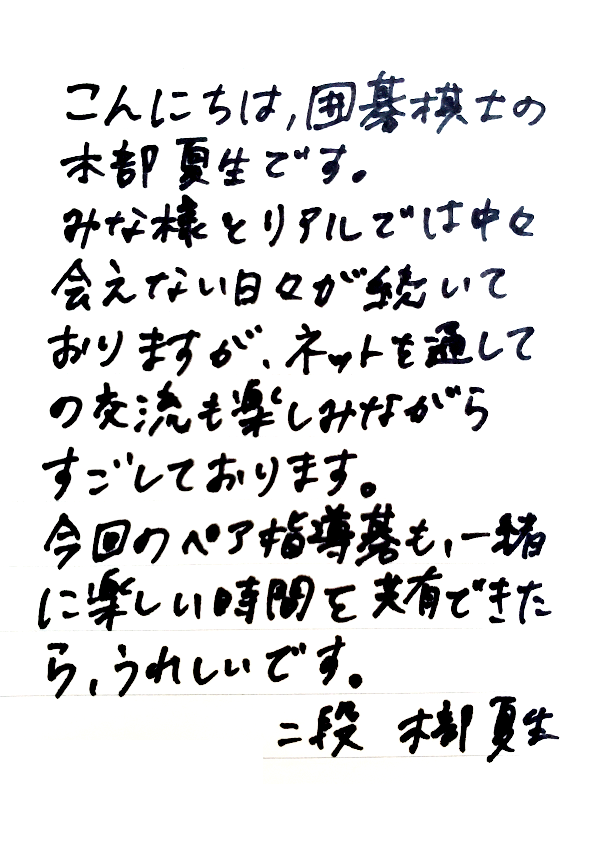 こんにちは,囲碁棋士の
木部夏生です。
みな様とリアルでは中々
会えない日々が続いて
おりますが、ネットを通して
の交流も楽しみながら
すごしております。
今回のペア指導碁も,一緒
に楽しい時間を共有できた
ら,うれしいです。
二段 木部夏生